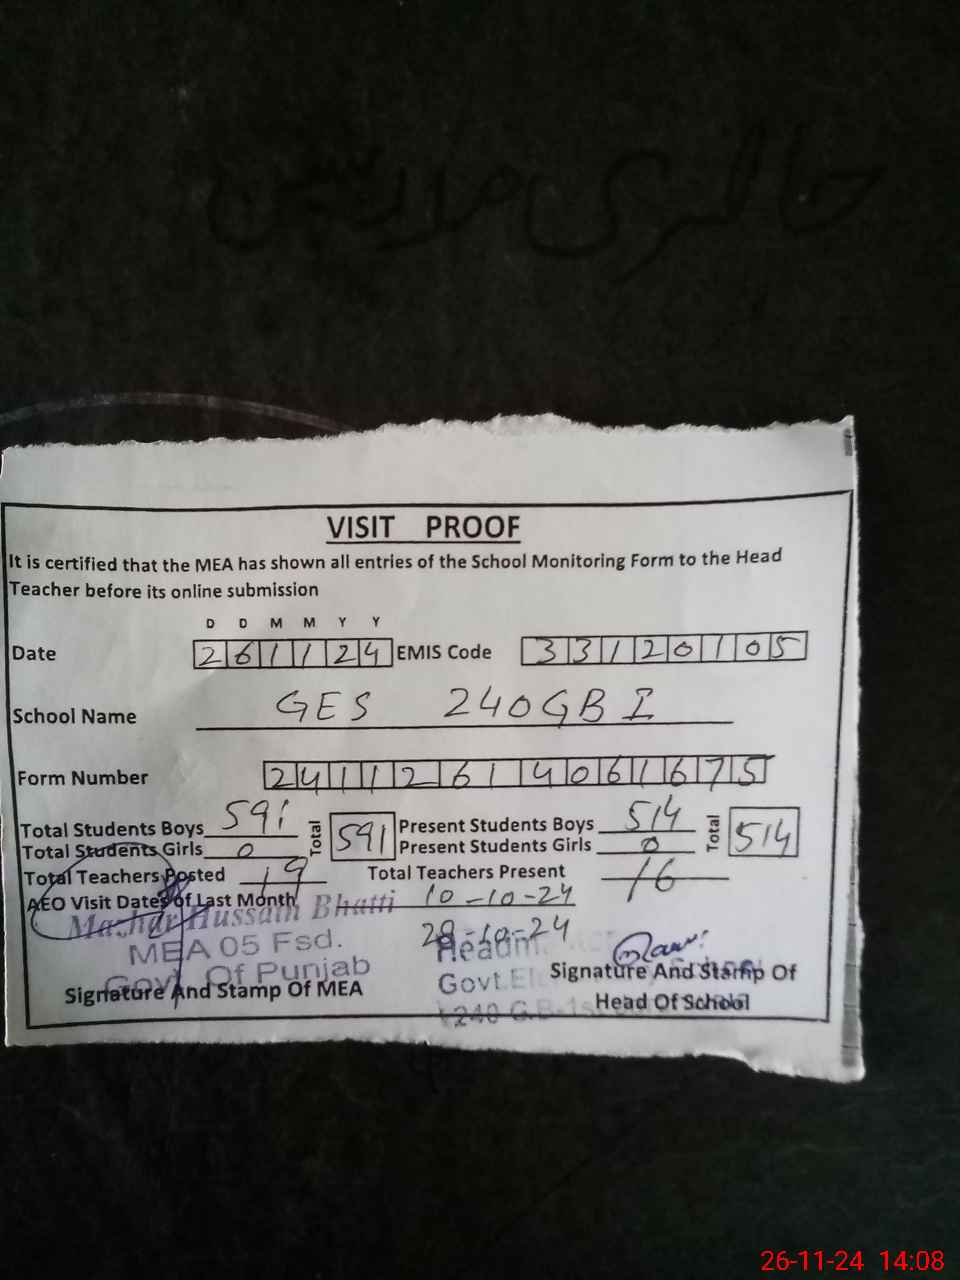 حاضری مدرسین
VISIT PROOF
It is certified that the MEA has shown all entries of the School Monitoring Form to the Head
Teacher before its online submission
D D M M Y Y
Date 261124 EMIS Code 33120105
School Name GES 240GB I
Form Number 24112614061675
Total Students Boys 591 Total 591 Present Students Boys 514 Total 514
Total Students Girls 0 Present Students Girls 0
Total Teachers Posted 19 Total Teachers Present 16
AEO Visit Dates of Last Month 10-10-24
Mazhar Hussain Bhatti
28-10-24
MEA 05 Fsd.
Govt. Of Punjab
Govt.
240 G.B-1
Signature And Stamp Of MEA
Signature And Stamp Of
Head Of School
26-11-24 14:08